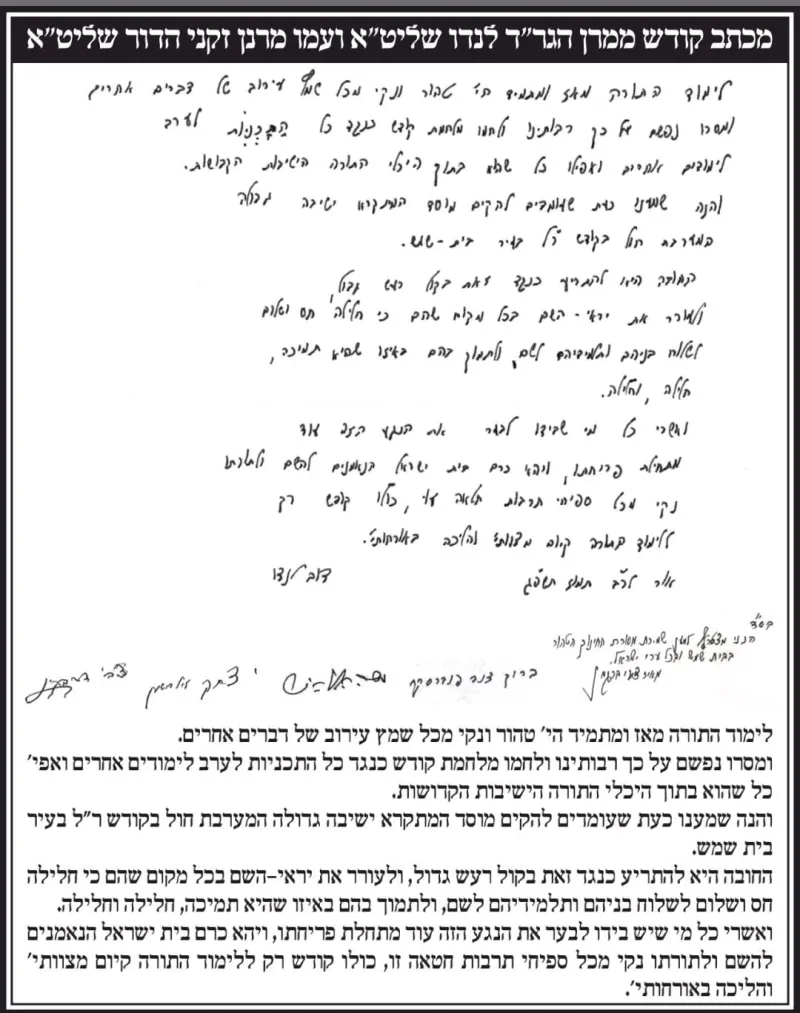 מכתב קודש ממרן הגר"ד לנדו שליט"א ועמו מרנן זקני הדור שליט"א
לימוד התורה מאז ומתמיד הי' טהור ונקי מכל שמץ עירוב של דברים אחרים
ומסרו נפשם על כך רבותינו ולחמו מלחמת קודש כנגד כל התכניות לערב
לימודים אחרים ואפילו כל שהוא בתוך היכלי התורה הישיבות הקדושות.
והנה שמענו כעת שעומדים להקים מוסד המתקרא ישיבה גדולה
המערבת חול בקודש ר"ל בעיר בית-שמש.
החובה היא להתריע כנגד זאת בקול רעש גדול,
ולעורר את יראי-השם בכל מקום שהם כי חלילה חס ושלום
לשלוח בניהם ותלמידיהם לשם, ולתמוך בהם באיזו שהיא תמיכה,
חלילה וחלילה.
ואשרי כל מי שבידו לבער את הנגע הזה עוד
מתחלת פריחתו, ויהא כרם בית ישראל הנאמנים להשם ולתורתו
נקי מכל ספיחי תרבות חטאה זו, כולו קודש רק
ללימוד התורה קיום מצוותי' והליכה באורחותי'.
אור לי"ב תמוז תשפ"ג
דוב לנדו
בס"ד
הנני מצטרף למען שמירת מסורת החינוך הטהור
בבית שמש ובכל ערי ישראל.
ברוך צבי
יצחק
לימוד התורה מאז ומתמיד הי' טהור ונקי מכל שמץ עירוב של דברים אחרים.
ומסרו נפשם על כך רבותינו ולחמו מלחמת קודש כנגד כל התכניות לערב לימודים אחרים ואפי'
כל שהוא בתוך היכלי התורה הישיבות הקדושות.
והנה שמענו כעת שעומדים להקים מוסד המתקרא ישיבה גדולה המערבת חול בקודש ר"ל בעיר
בית שמש.
החובה היא להתריע כנגד זאת בקול רעש גדול, ולעורר את יראי-השם בכל מקום שהם כי חלילה
חס ושלום לשלוח בניהם ותלמידיהם לשם, ולתמוך בהם באיזו שהיא תמיכה, חלילה וחלילה.
ואשרי כל מי שיש בידו לבער את הנגע הזה עוד מתחלת פריחתו, ויהא כרם בית ישראל הנאמנים
להשם ולתורתו נקי מכל ספיחי תרבות חטאה זו, כולו קודש רק ללימוד התורה קיום מצוותי'
והליכה באורחותי'.